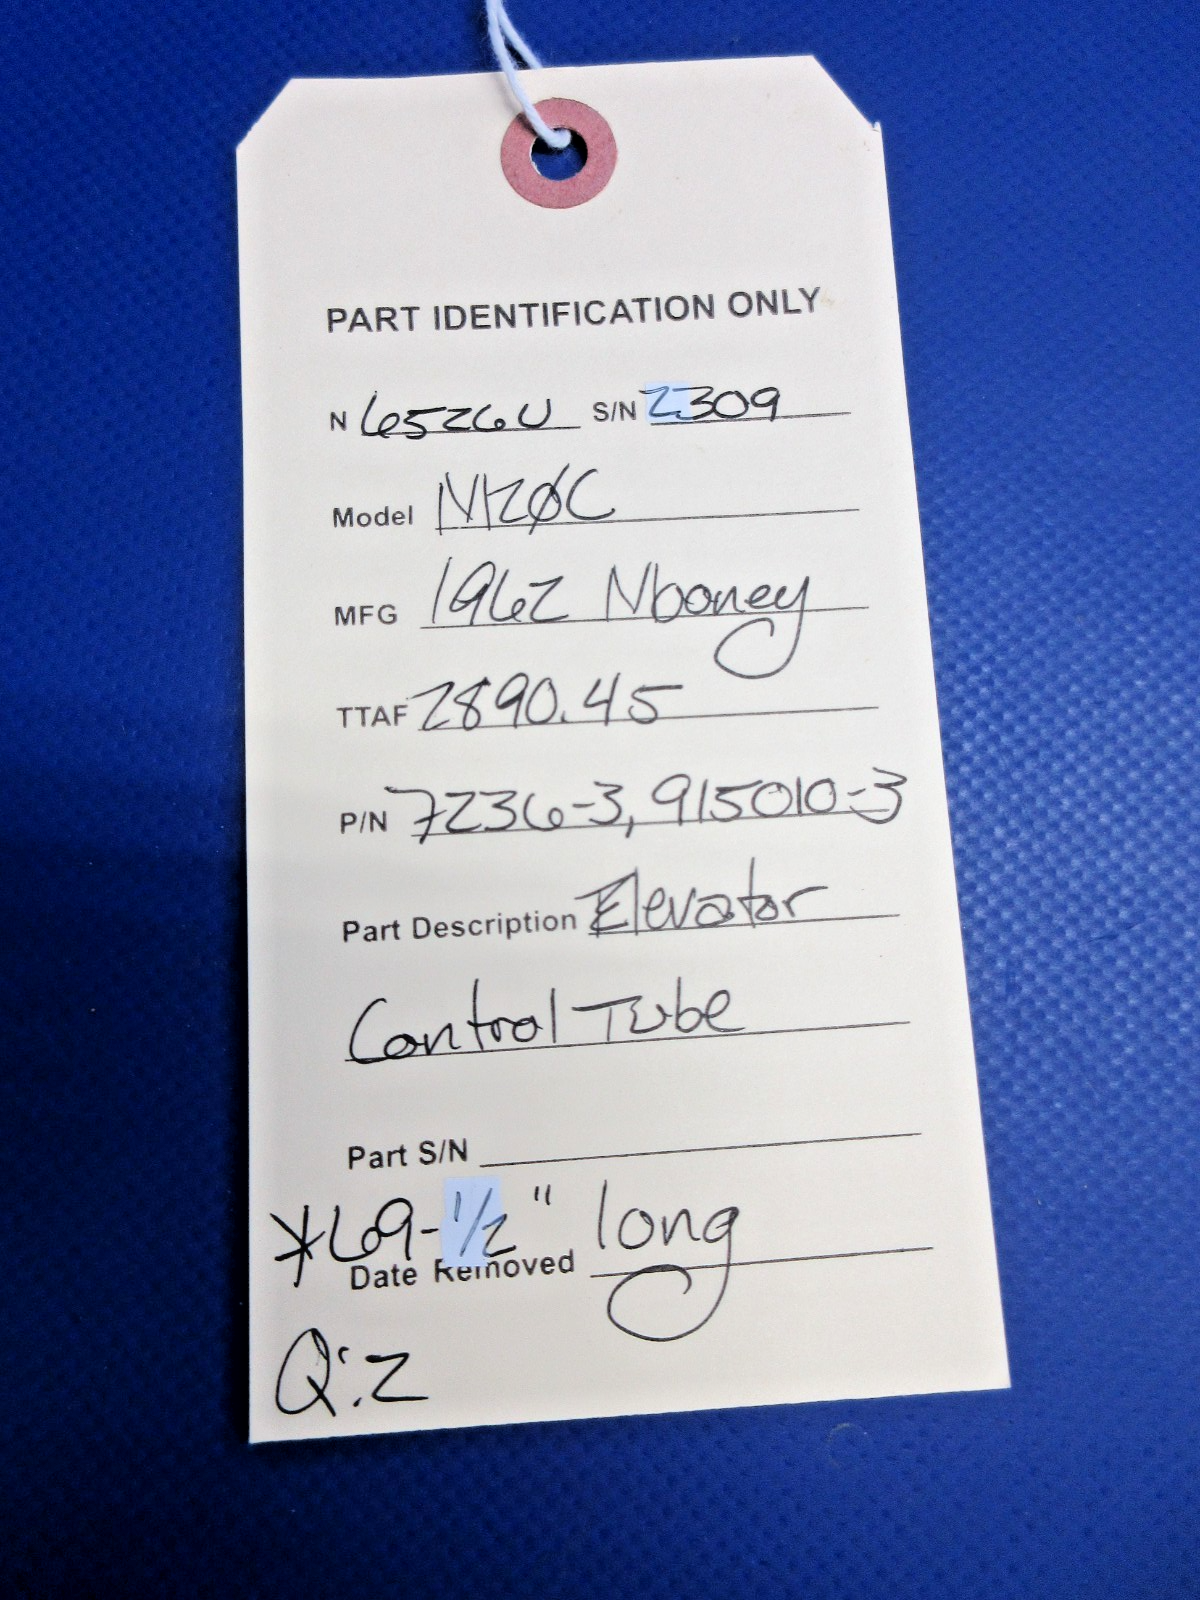 PART IDENTIFICATION ONLY
N 6526U S/N 2309
Model M20C
MFG 1962 Mooney
TTAF 2890.45
P/N 7236-3, 915010-3
Part Description Elevator
Control Tube
Part S/N
*69-1/2" long
Date Removed
Q:2